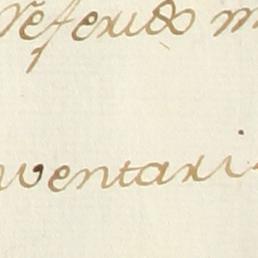 referido m
nventari